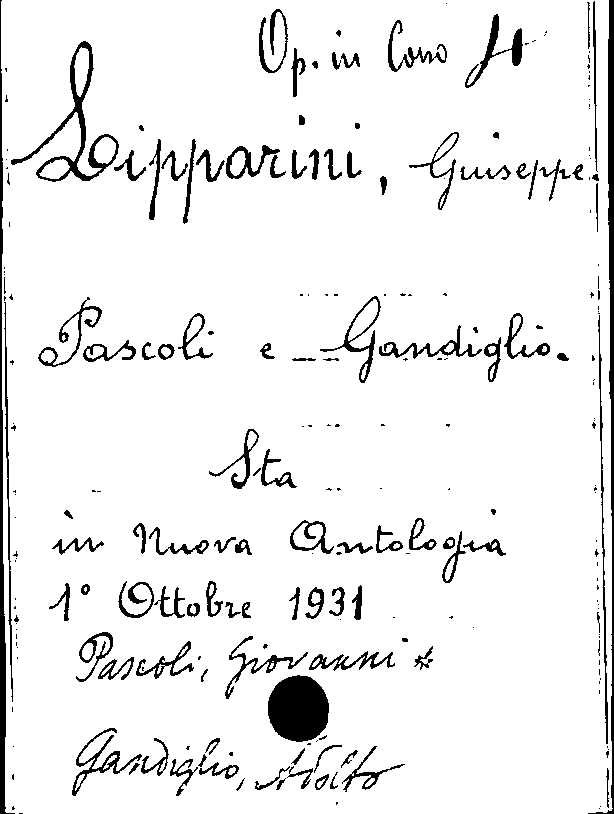 Op. in Corso
Lipparini, Giuseppe.
Pascoli e Gandiglio.
Sta
in Nuova Antologia
1° Ottobre 1931
Pascoli, Giovanni *
Gandiglio, Adolfo